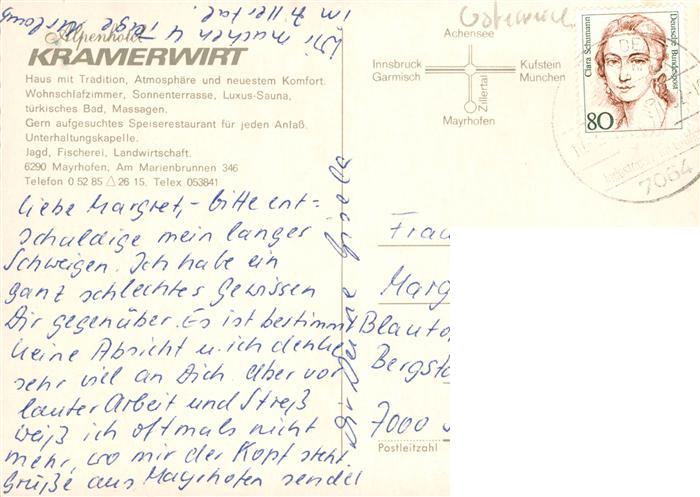 Wir machen 4 Tage Urlaub
im Zillertal.
Alpenhotel
KRAMERWIRT
Haus mit Tradition, Atmosphäre und neuestem Komfort.
Wohnschlafzimmer, Sonnenterrasse, Luxus-Sauna,
türkisches Bad, Massagen.
Gern aufgesuchtes Speiserestaurant für jeden Anlaß.
Unterhaltungskapelle.
Jagd, Fischerei, Landwirtschaft.
6290 Mayrhofen, Am Marienbrunnen 346
Telefon 0 52 85 △ 26 15. Telex 053841
Liebe Margret,- bitte ent=
schuldige mein langes
Schweigen. Ich habe ein
ganz schlechtes Gewissen
Dir gegenüber. Es ist bestimmt
keine Absicht u. ich denke
sehr viel an Dich. Aber vor
lauter Arbeit und Streß
weiß ich oftmals nicht
mehr, wo mir der Kopf steht.
Grüße aus Mayrhofen sendet
Österreich
Achensee
Innsbruck
Garmisch
Kufstein
München
Zillertal
Mayrhofen
Clara Schumann
Deutsche Bundespost
80
7064
Frau
Marg
Blauto
Bergsta
7000
Postleitzahl